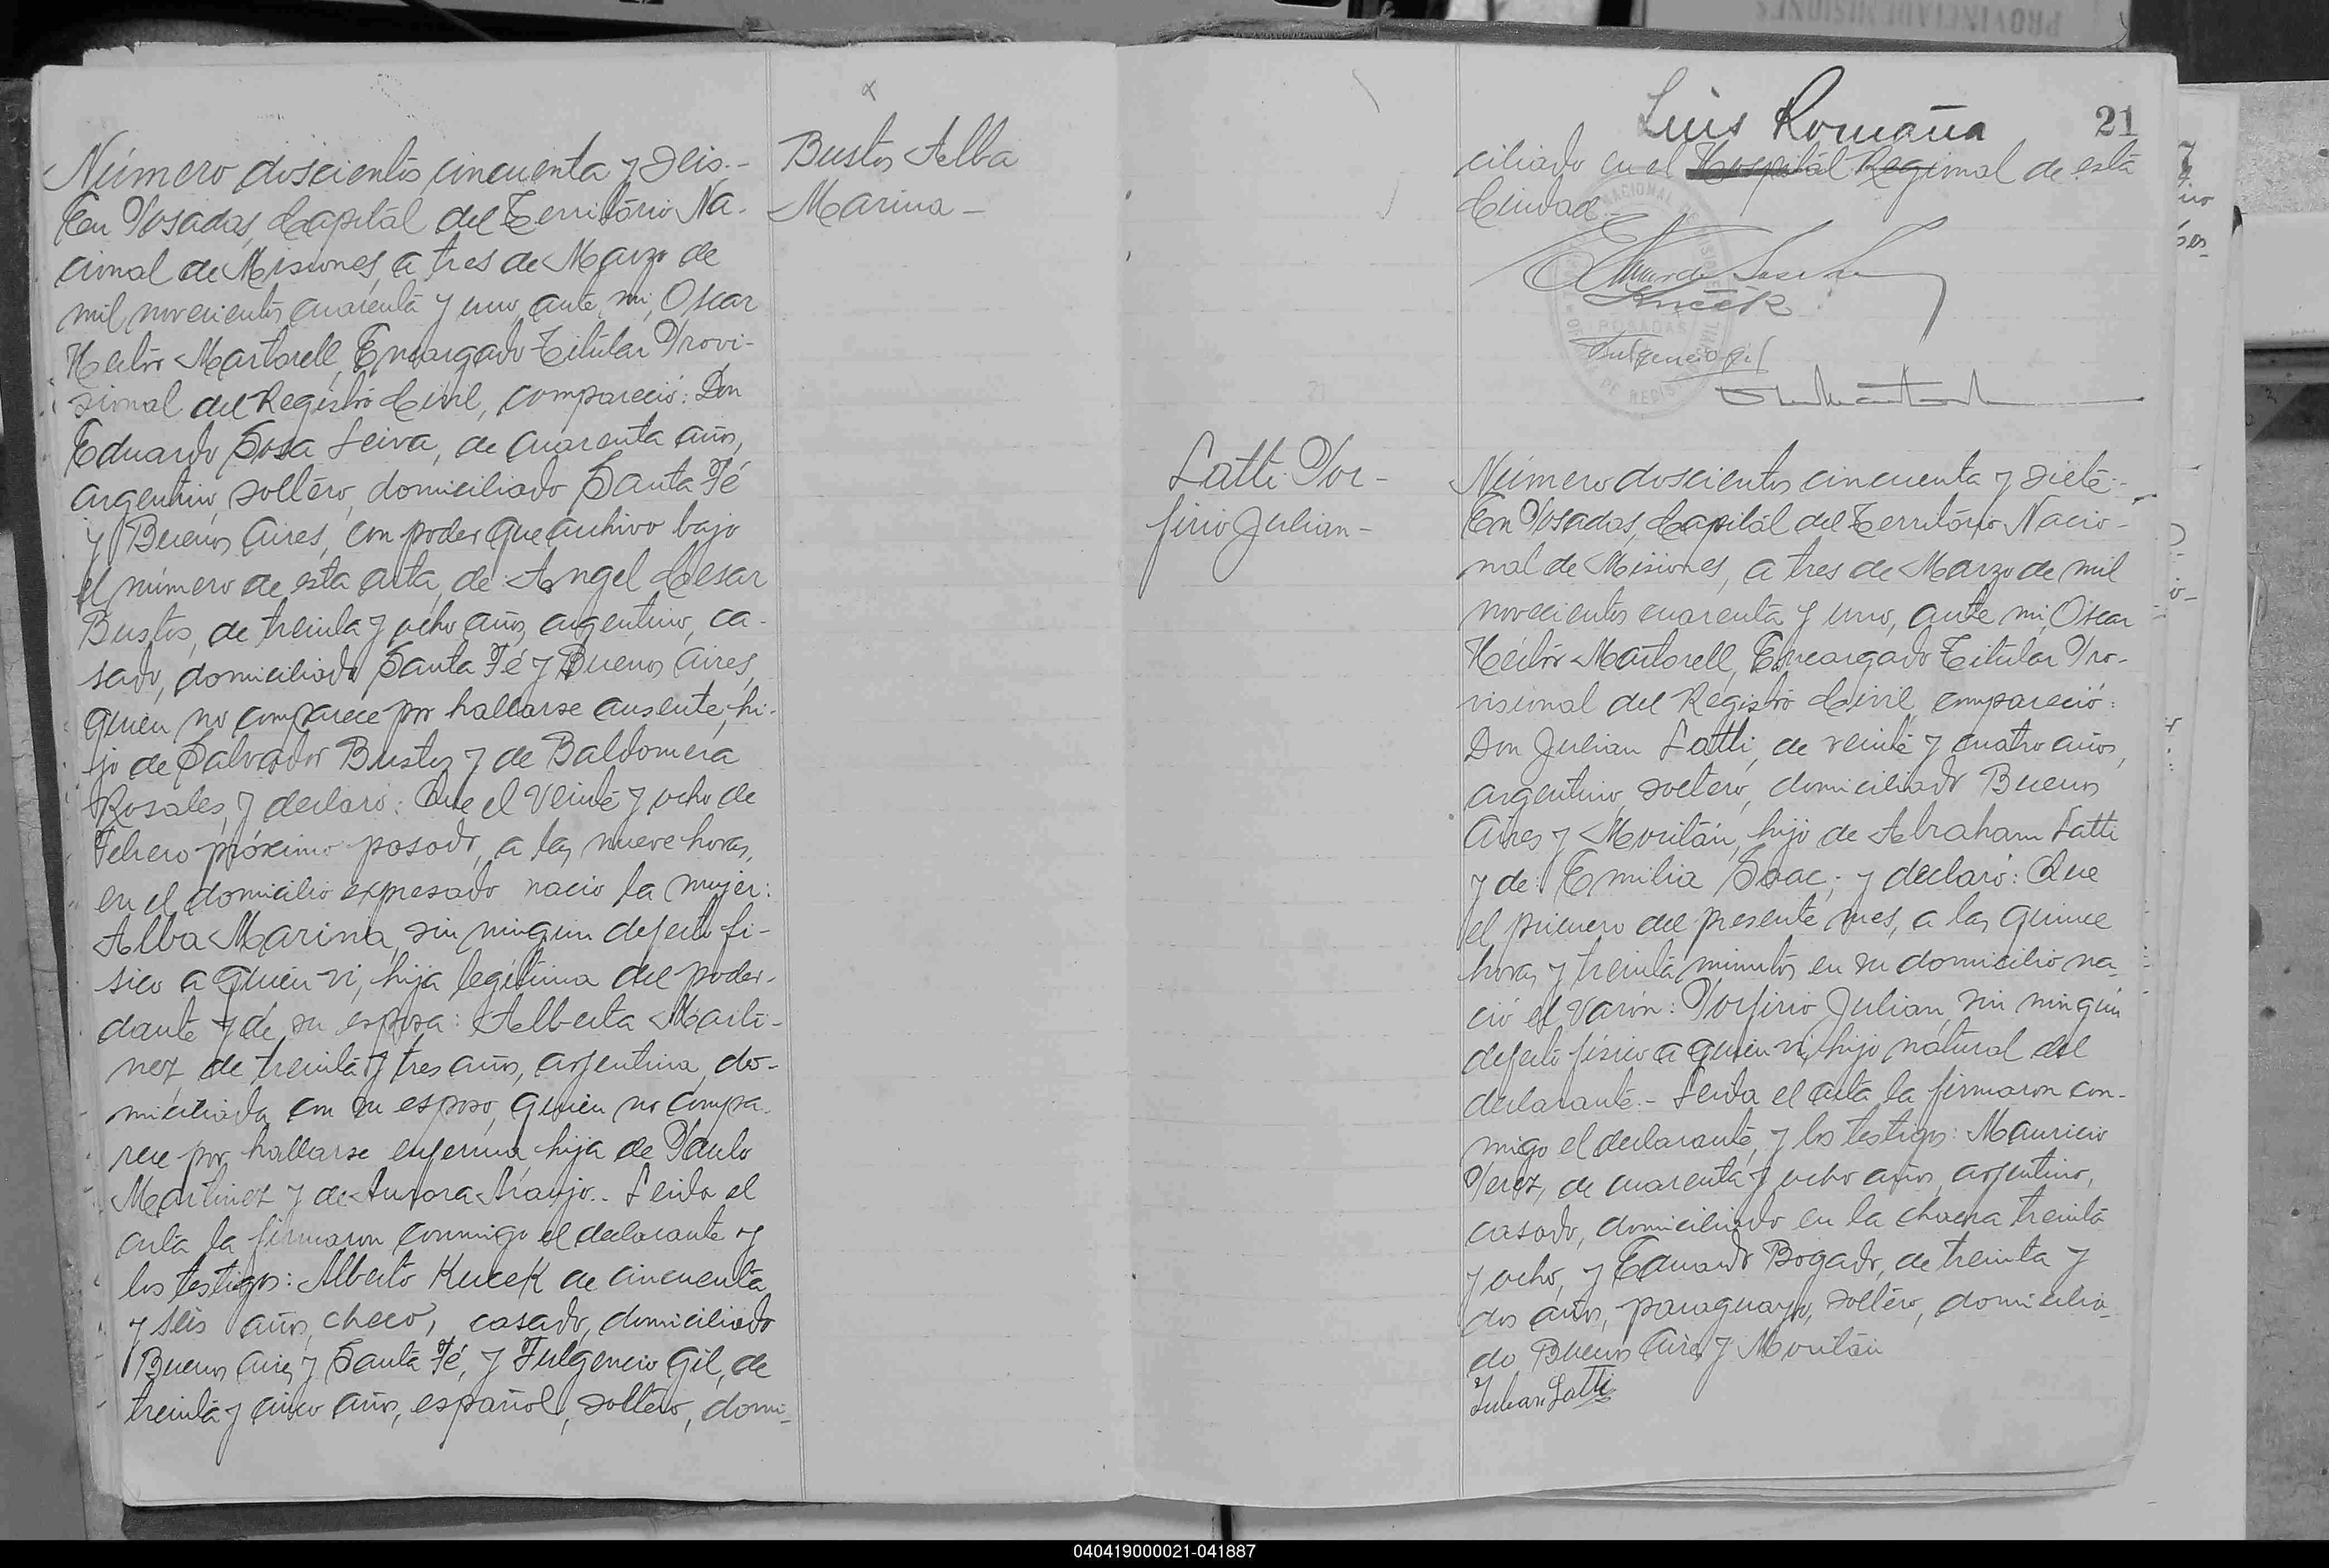 Número doscientos cincuenta y seis.-
En Posadas, Capitál del Território Na-
cional de Misiones, a tres de Marzo de
mil novecientos cuarenta y uno, ante mi, Oscar
Hector Martorell, Encargado Titular Provi-
sional del Registro Civil, compareció: Don
Eduardo Sosa Leiva, de cuarenta años,
argentino, soltero, domiciliado Santa Fé
y Buenos Aires, con poder que archivo bajo
el número de esta acta, de Angel Cesar
Bustos, de treinta y ocho años, argentino, ca-
sado, domiciliado Santa Fé y Buenos Aires,
quien no comparece por hallarse ausente, hi-
jo de Salvador Bustos y de Baldomera
Rosales, y declaró: Que el veinte y ocho de
Febrero próximo pasado, a las nueve horas,
en el domicilio expresado nacio la mujer:
Alba Marina, sin ningun defecto fi-
sico a quien vi, hija legitima del poder-
dante y de su esposa: Alberta Marti-
nez de treinta y tres años, argentina, do-
miciliada con su esposo, quien no compa-
rece por hallarse enferma hija de Paulo
Martinez y de Aurora Araujo.- Leida el
acta la firmaron conmigo el declarante y
los testigos: Alberto Kucek de cincuenta
y seis años, checo, casado, domiciliado
Buenos Aires y Santa Fé, y Fulgencio Gil, de
treinta y cinco años, español, soltero, domi-
Bustos Alba
Marina-
Luis Romaña
21
ciliado en el Hospital Regional de está
Ciudad.-
Kucek
Fulgencio Gil
POSADAS
Latti Por-
firio Julian-
Número doscientos cincuenta y siete.-
En Posadas, Capitál del Território Nacio-
nal de Misiones, a tres de Marzo de mil
novecientos cuarenta y uno, ante mi, Oscar
Héctor Martorell, Encargado Titular Pro-
visional del Registro Civil, compareció:
Don Julian Latti, de veinte y cuatro años,
argentino, soltero, domiciliado Buenos
Aires y Moritán, hijo de Abraham Latti
y de: Emilia Saac; y declaró: Que
el primero del presente mes, a las quince
horas y treinta minutos en su domicilio na-
ció el varón: Porfirio Julian, sin ningún
defecto físico a quien vi, hijo natural del
declarante.- Leida el acta la firmaron con-
migo el declarante, y los testigos: Mauricio
Perez, de cuarenta y ocho años, argentino,
casado, domiciliado en la chacra treinta
y ocho, y Eduardo Bogado, de treinta y
dos años, paraguayo, soltero, domicilia-
do, Buenos Aires y Moritán
Julian Latti
040419000021-041887